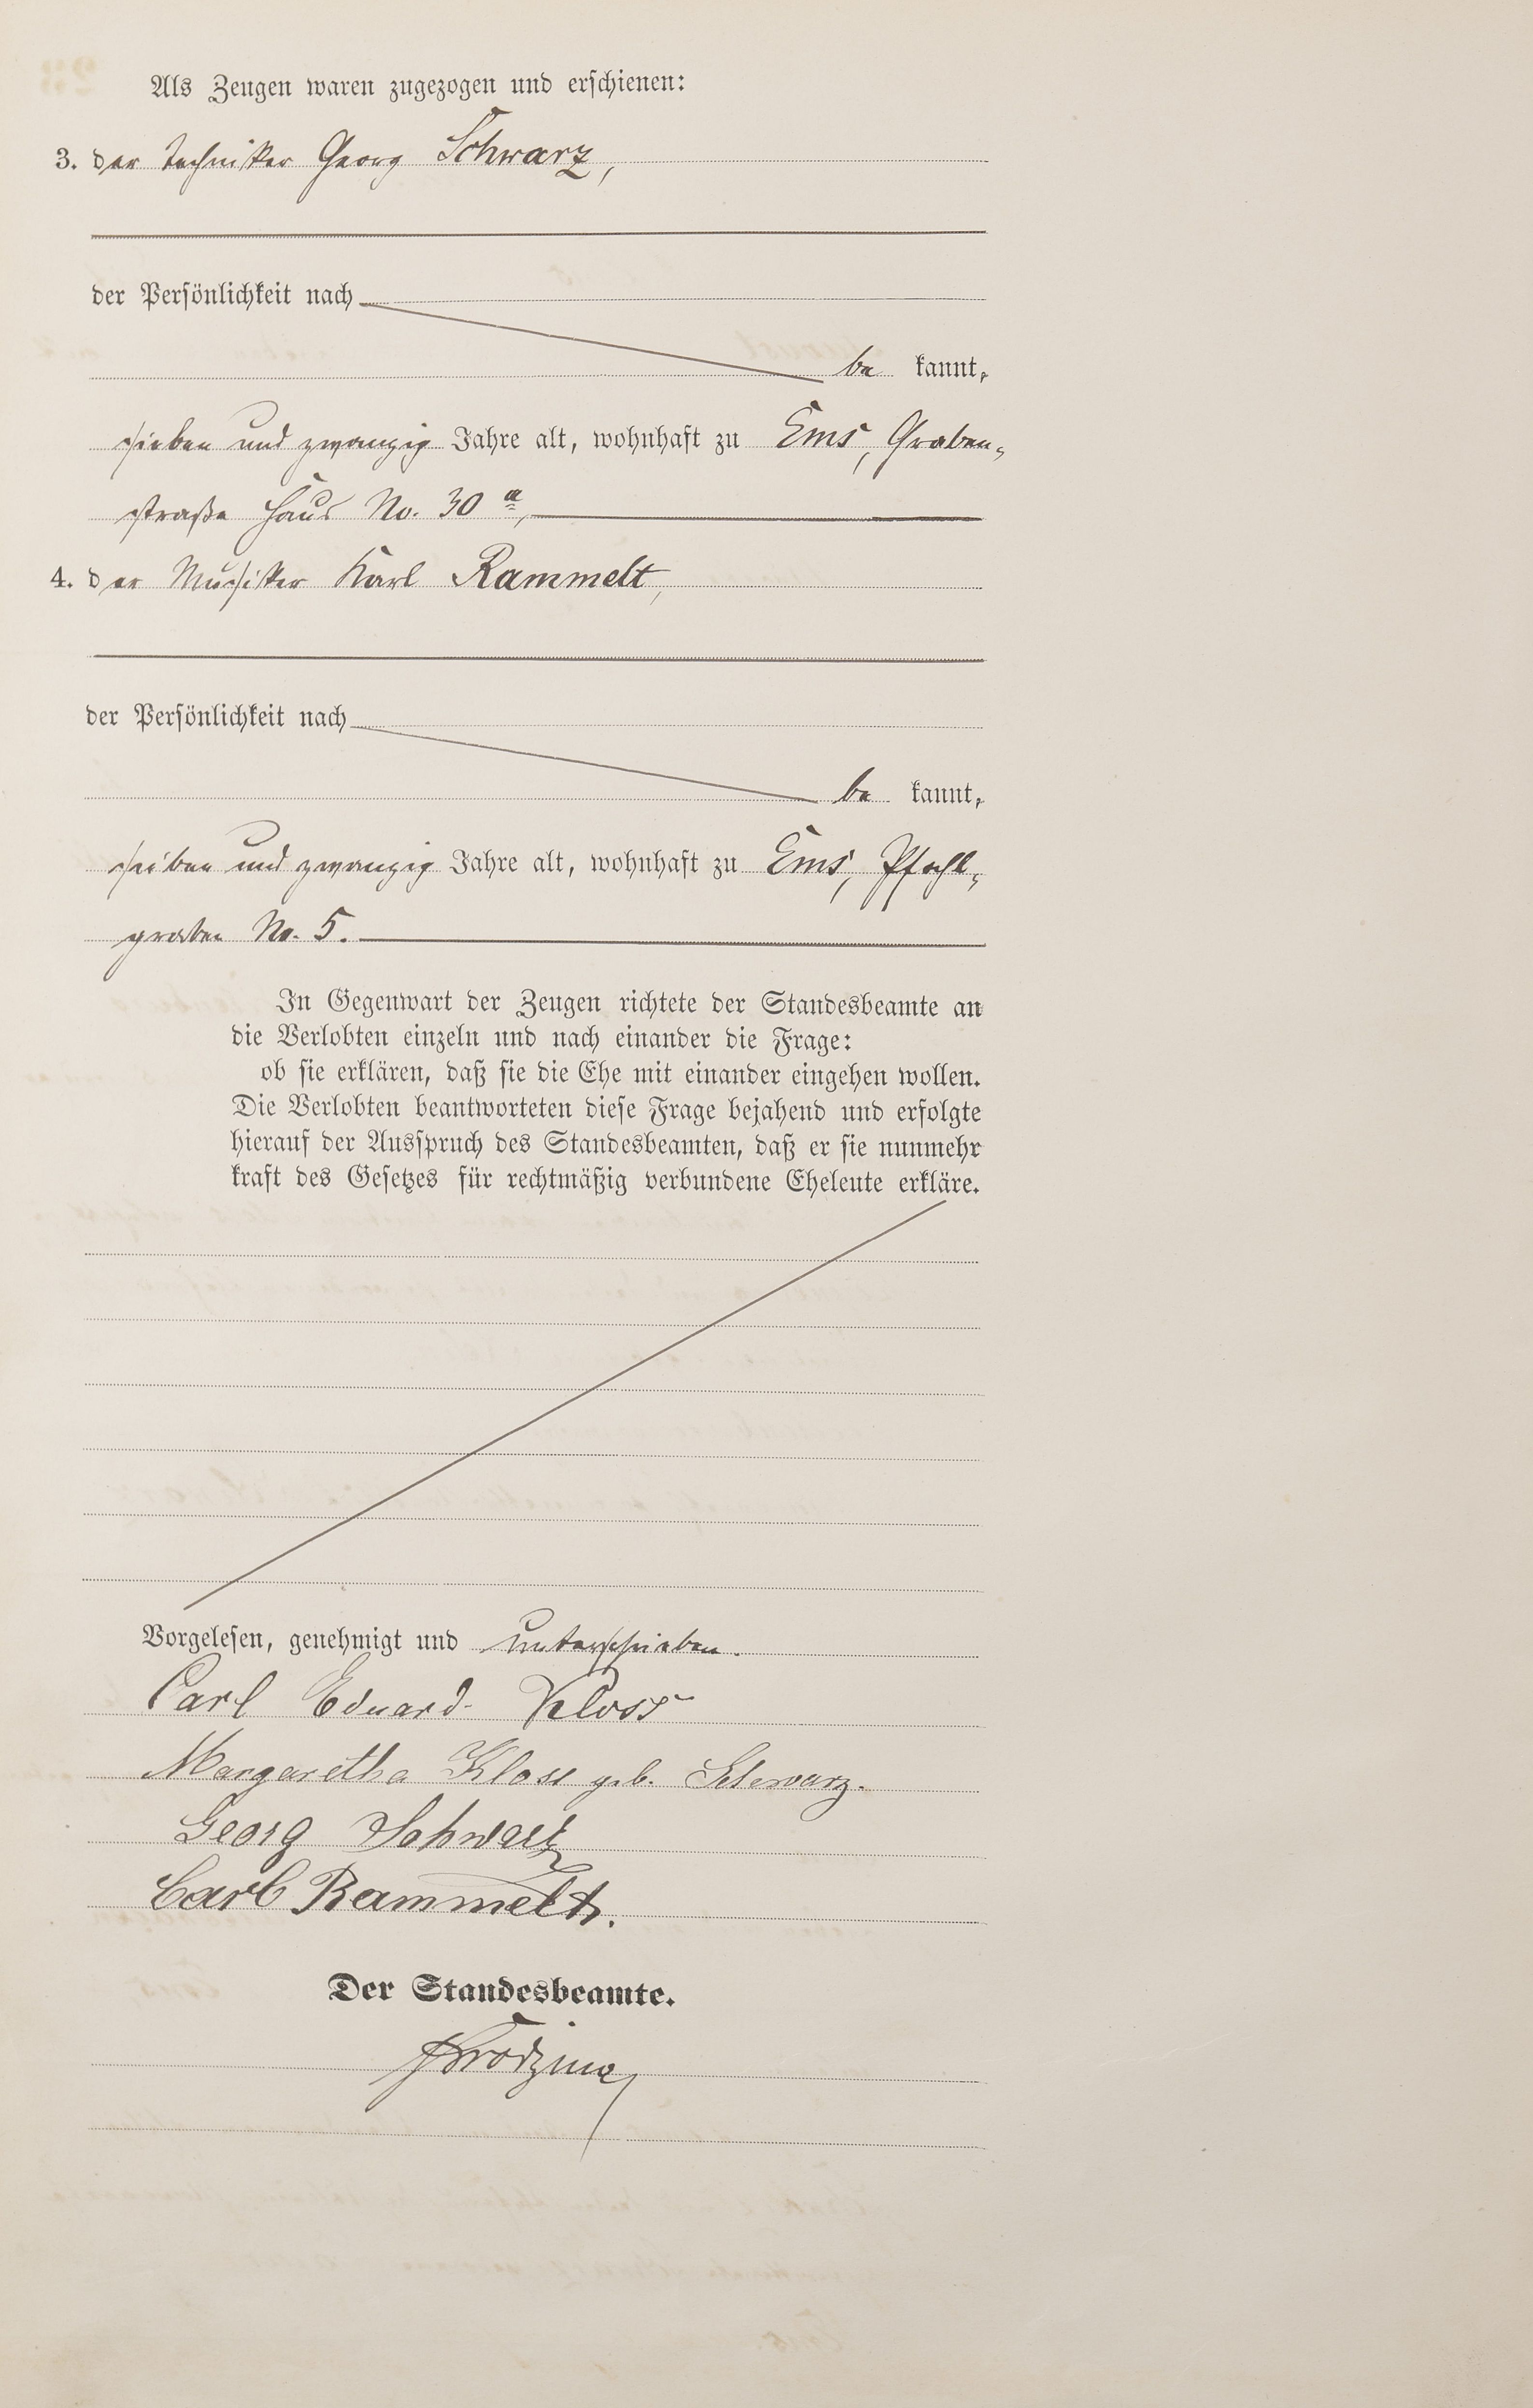 Als Zeugen waren zugezogen und erschienen:
3. der Techniker Georg Schwarz,
der Persönlichkeit nach
be kannt,
sieben und zwanzig Jahre alt, wohnhaft zu Ems, Graben-
straße Haus No. 30 a,
4. der Musiker Karl Rammelt,
der Persönlichkeit nach
be kannt,
sieben und zwanzig Jahre alt, wohnhaft zu Ems, Pfahl-
graben No. 5.
In Gegenwart der Zeugen richtete der Standesbeamte an
die Verlobten einzeln und nach einander die Frage:
ob sie erklären, daß sie die Ehe mit einander eingehen wollen.
Die Verlobten beantworteten diese Frage bejahend und erfolgte
hierauf der Ausspruch des Standesbeamten, daß er sie nunmehr
kraft des Gesetzes für rechtmäßig verbundene Eheleute erkläre.
Vorgelesen, genehmigt und unterschrieben.
Carl Eduard Kloss
Margaretha Kloss geb. Schwarz.
Georg Schwarz
Carl Rammelt.
Der Standesbeamte.